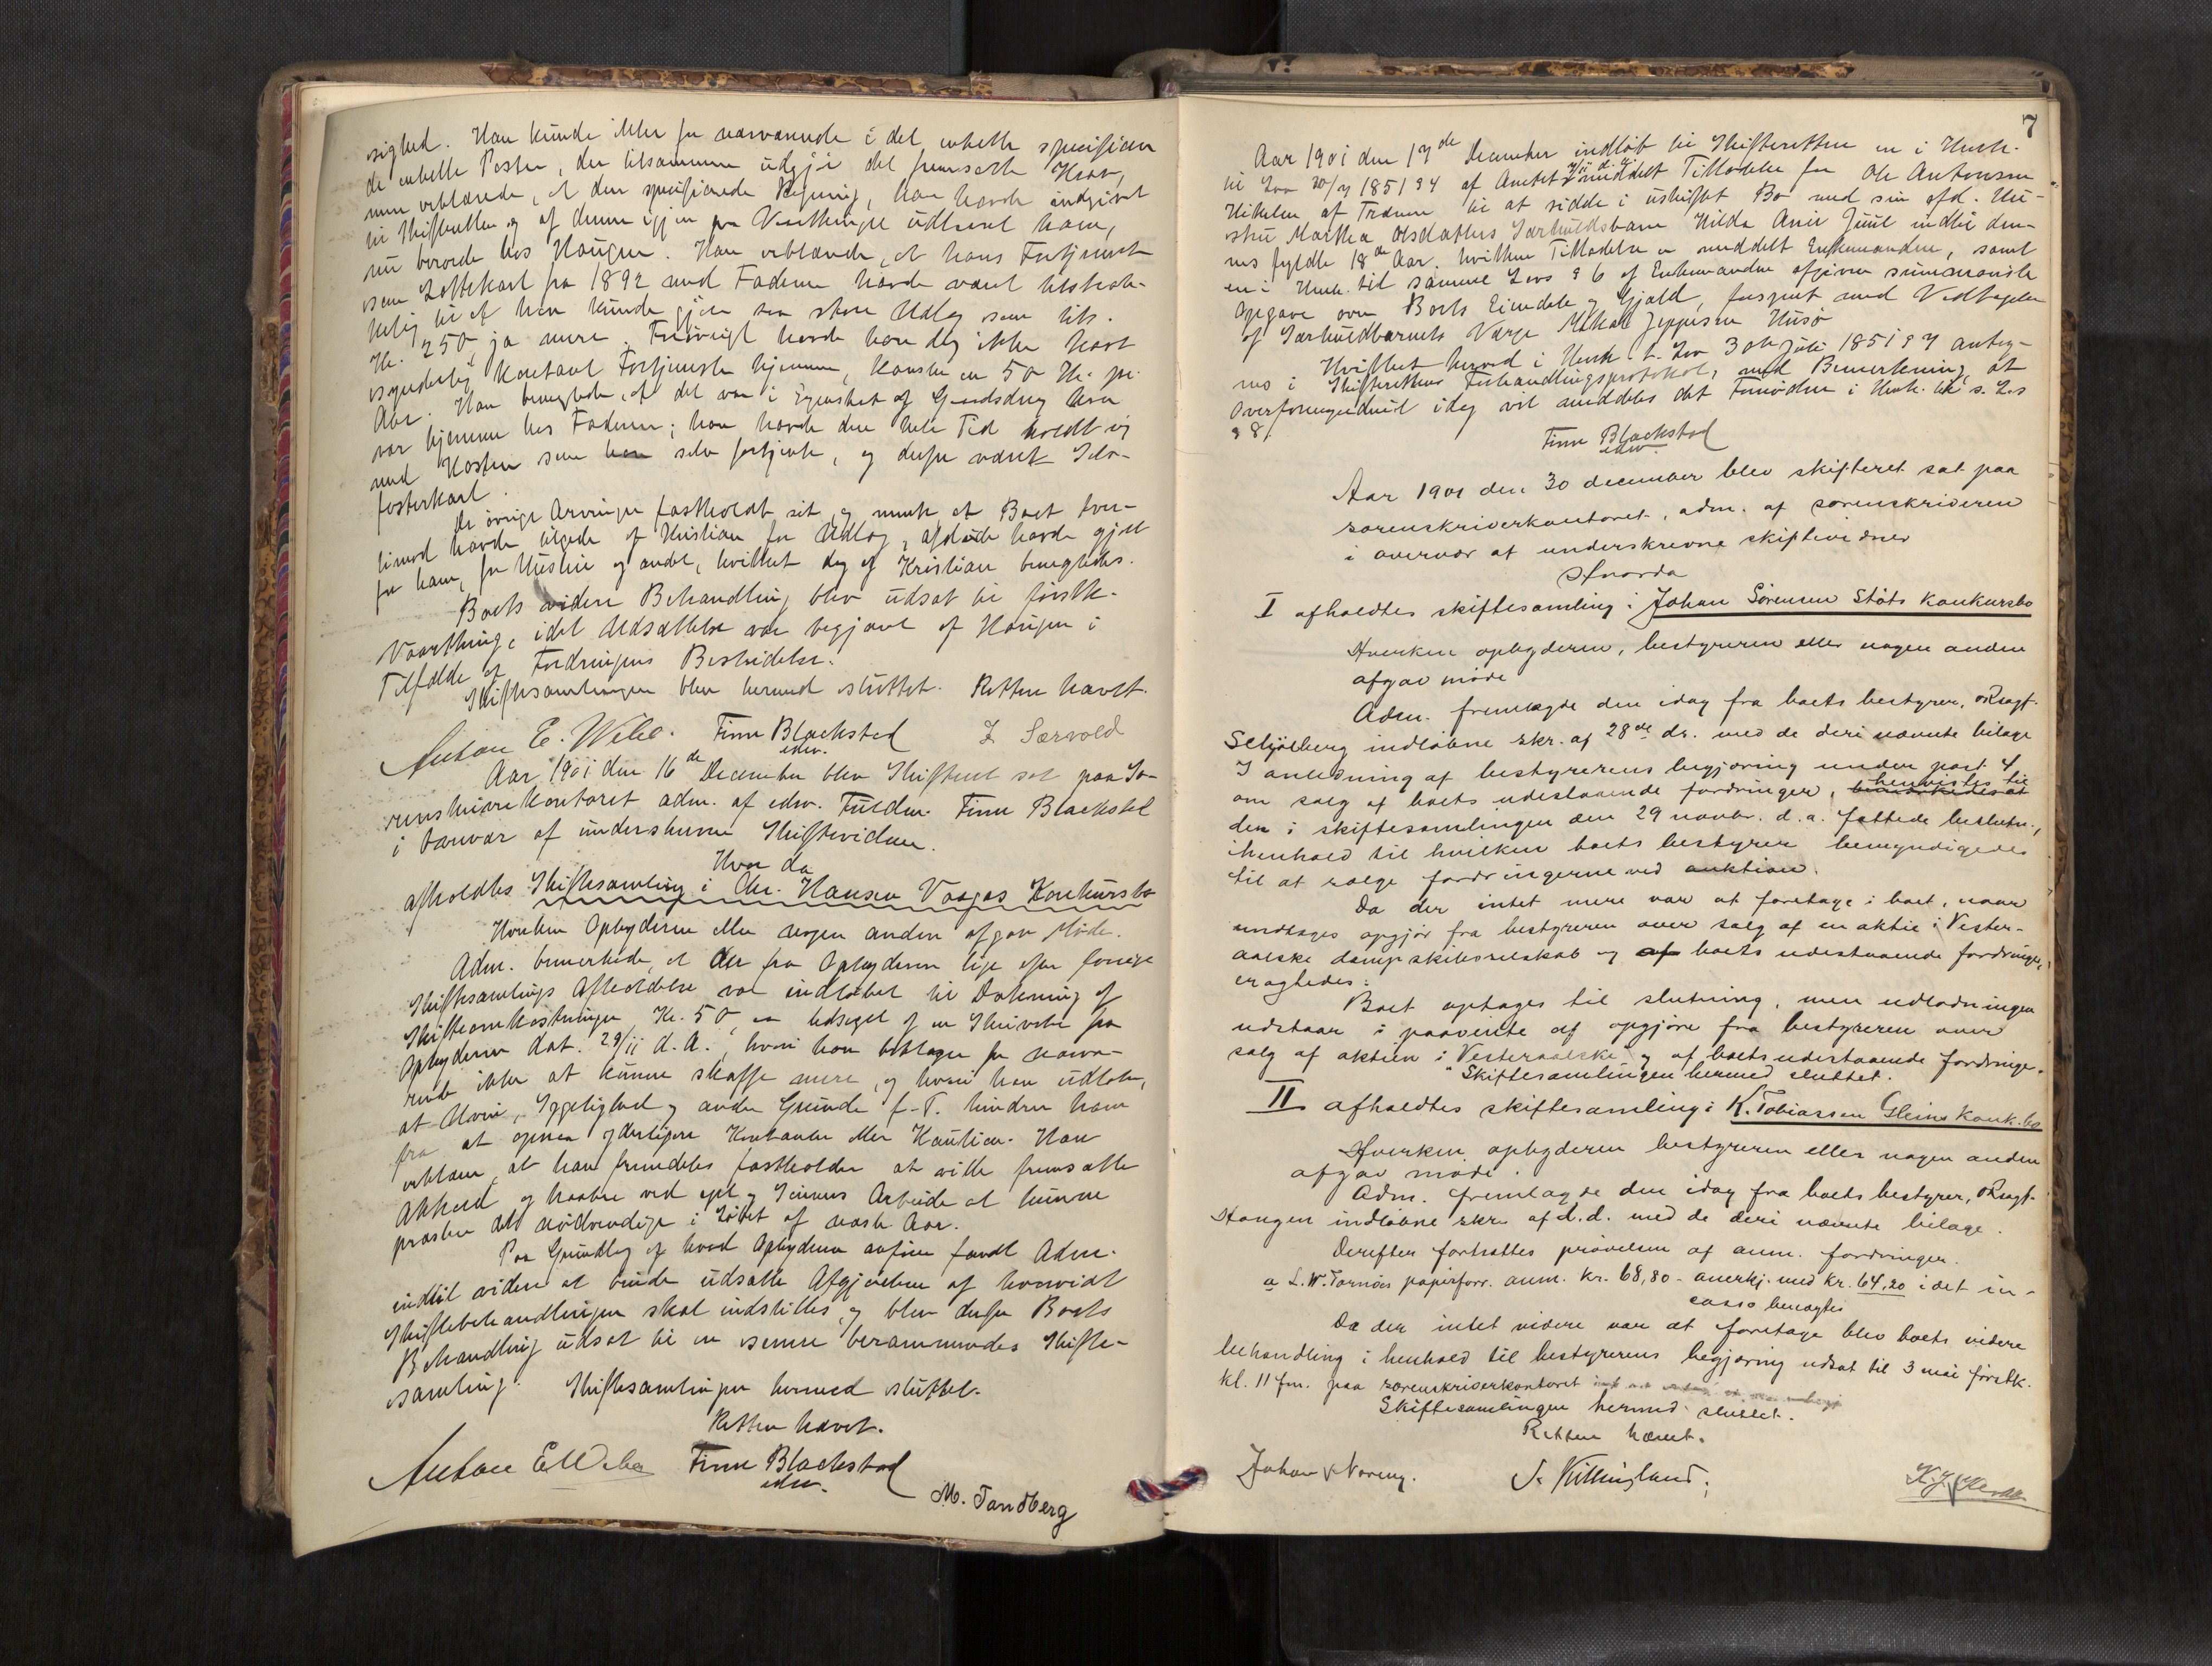 sighed. Han kunde ikke for nærværende i det enkelte specificere
de enkelte Poster, der tilsammen udgjør det fremsatte Krav,
men erklærede, at den specificerede Regning, han havde indgivet
til Skifteretten og af denne igjen var udlaant ham,
nu beroede hos Haugen. Han erklærede, at hans Fortjeneste
som Lottekarl fra 1892 med Faderen havde været tilstræk-
kelig til at han kunde gjøre saa store Udlæg som
Kr. 250, ja mere. Forøvrigt havde han dog ikke havt
synderlig kontant Fortjeneste hjemme, kanske en 50 Kr. pr.
Aar. Han benegtede, at det var i Egenskab af Gaardsdreng han
var hjemme hos Faderen; han havde den hele Tid holdt sig
med Kosten som han selv fortjente, og derfor været Selv-
fosterkarl.
De øvrige Arvinger fastholdt sit, og mente at Boet tver-
timod havde tilgode af Kristian for Udlæg, afdøde havde gjort
for ham, for Husleie og andet, hvilket dog af Kristian benegtedes.
Boets videre Behandling blev udsat til førstk.
Vaarthing, idet Udsættelse var begjært af Haugen i
Tilfælde af Fordringens Bestridelse.
Skiftesamlingen blev hermed sluttet. Retten hævet.
Anton E. Wibe. Finn Blackstad J. Særvold
edsv.
Aar 1901 den 16de December blev Skifteret sat paa So-
renskriverkontoret adm. af edsv. Fuldm. Finn Blackstad
i Overvær af underskrevne Skiftevidner.
Hvor da
afholdtes Skiftesamling i Chr. Hansen Vaagas Konkursbo
Hverken Opbyderen eller nogen anden afgav Møde.
Adm. bemerkede, at der fra Opbyderen lige efter forrige
Skiftesamlings Afholdelse var indløbet til Dækning af
Skifteomkostninger Kr. 50, en af en Skrivelse fra
Opbyderen dat. 29/11 d.A., hvori han beklager for nærvæ-
rende ikke at kunne skaffe mere, og hvori han udtaler,
at Uveir, Sygelighed og andre Grunde f.T. hindrer ham
fra at opnaa yderligere Kontanter eller Kaution. Han
erklærer, at han fremdeles fastholder at ville fremsætte
Akkord og haaber ved eget og Sønners Arbeide at kunne
præstere det nødvendige i Løbet af næste Aar.
Paa Grundlag af hvad Opbyderen anfører fandt Adm.
indtil videre at burde udsætte Afgjørelsen af hvorvidt
Skiftebehandlingen skal indstilles, og blev derfor Boets
Behandling udsat til en senere berammendes Skifte-
samling. Skiftesamlingen hermed sluttet.
Retten hævet.
Anton E Wibe Finn Blackstad
edsv.
M. Tandberg
7
Aar 1901 den 17de December indløb til Skifteretten en i Henh.
til Lov 30/7 1851 § 4 af Amtet meddelt Tilladelse for Ole Antonsen
af Trænen til at sidde i uskiftet Bo med sin afd. Hu-
stru Martha Olsdatters Særkuldsbarn Hilda Anie Juul indtil den-
nes fyldte 18de Aar, hvilken Tilladelse er meddelt Enkemanden, samt
en i Henh. til samme Lovs § 6 af Enkemanden afgiven summarisk
Opgave over Boets Eiendele og Gjæld, forsynet med Vedtagelse
af Særkuldbarnets Værge Mikal Jeppesen Husø
Hvilket herved i Henh. t. Lov 30te Juli 1851 § 7 anteg-
nes i Skifterettens Forhandlingsprotokol, med Bemerkning, at
Overformynderiet idag vil meddeles det Fornødne i Henh. til s. L.s
§ 8.
Finn Blackstad
edsv.
Aar 1901 den 30 december blev skifteret sat paa
sorenskriverkontoret, adm. af sorenskriveren
i overvær af underskrevne skiftevidner
Hvorda
I afholdtes skiftesamling i Johan Sörensen Stöts konkursbo
Hverken opbyderen, bestyreren eller nogen anden
afgav möde
Adm. fremlagde den idag fra boets bestyrer, oRsagf.
Schjølberg indløbne skr. af 28de ds. med de deri nævnte bilage
I anledning af bestyrerens begjæring under post 4
om salg af boets udestaaende fordringer, henvistes til
den i skiftesamlingen den 29 novbr. d.a. fattede beslutn.,
i henhold til hvilken boets bestyrer bemyndigedes
til at sælge fordringerne ved auktion.
Da der intet mere var at foretage i boet, naar
undtages opgjør fra bestyreren over salg af en aktie i Vester-
aalske dampskibsselskab og af boets udestaaende fordringer,
eragtedes:
Boet optages til slutning, men udlodningen
udstaar i paavente af opgjøre fra bestyreren over
salg af aktien i "Vesteraalske" og af boets udestaaende fordringe.
Skiftesamlingen hermed sluttet.
II afholdtes skiftesamling i K. Tobiassen Gleins konk.bo
Hverken opbyderen bestyreren eller nogen anden
afgav möde.
Adm. fremlagde den idag fra boets bestyrer, oRsagf.
Haugen indløbne skr. af d.d. med de deri nævnte bilage.
Derefter fortsattes prøvelsen af anm. fordringer.
a L.W. Tornöes papirforr. anm. kr. 68,80 - anerkj. med kr. 64,20 idet in-
casso benegtes
Da der intet videre var at foretage blev boets videre
behandling i henhold til bestyrerens begjæring udsat til 3 mai førstk.
kl. 11 fm. paa sorenskriverkontoret
Skiftesamlingen hermed sluttet.
Retten hævet.
Johan Noreng. S. Killingland.